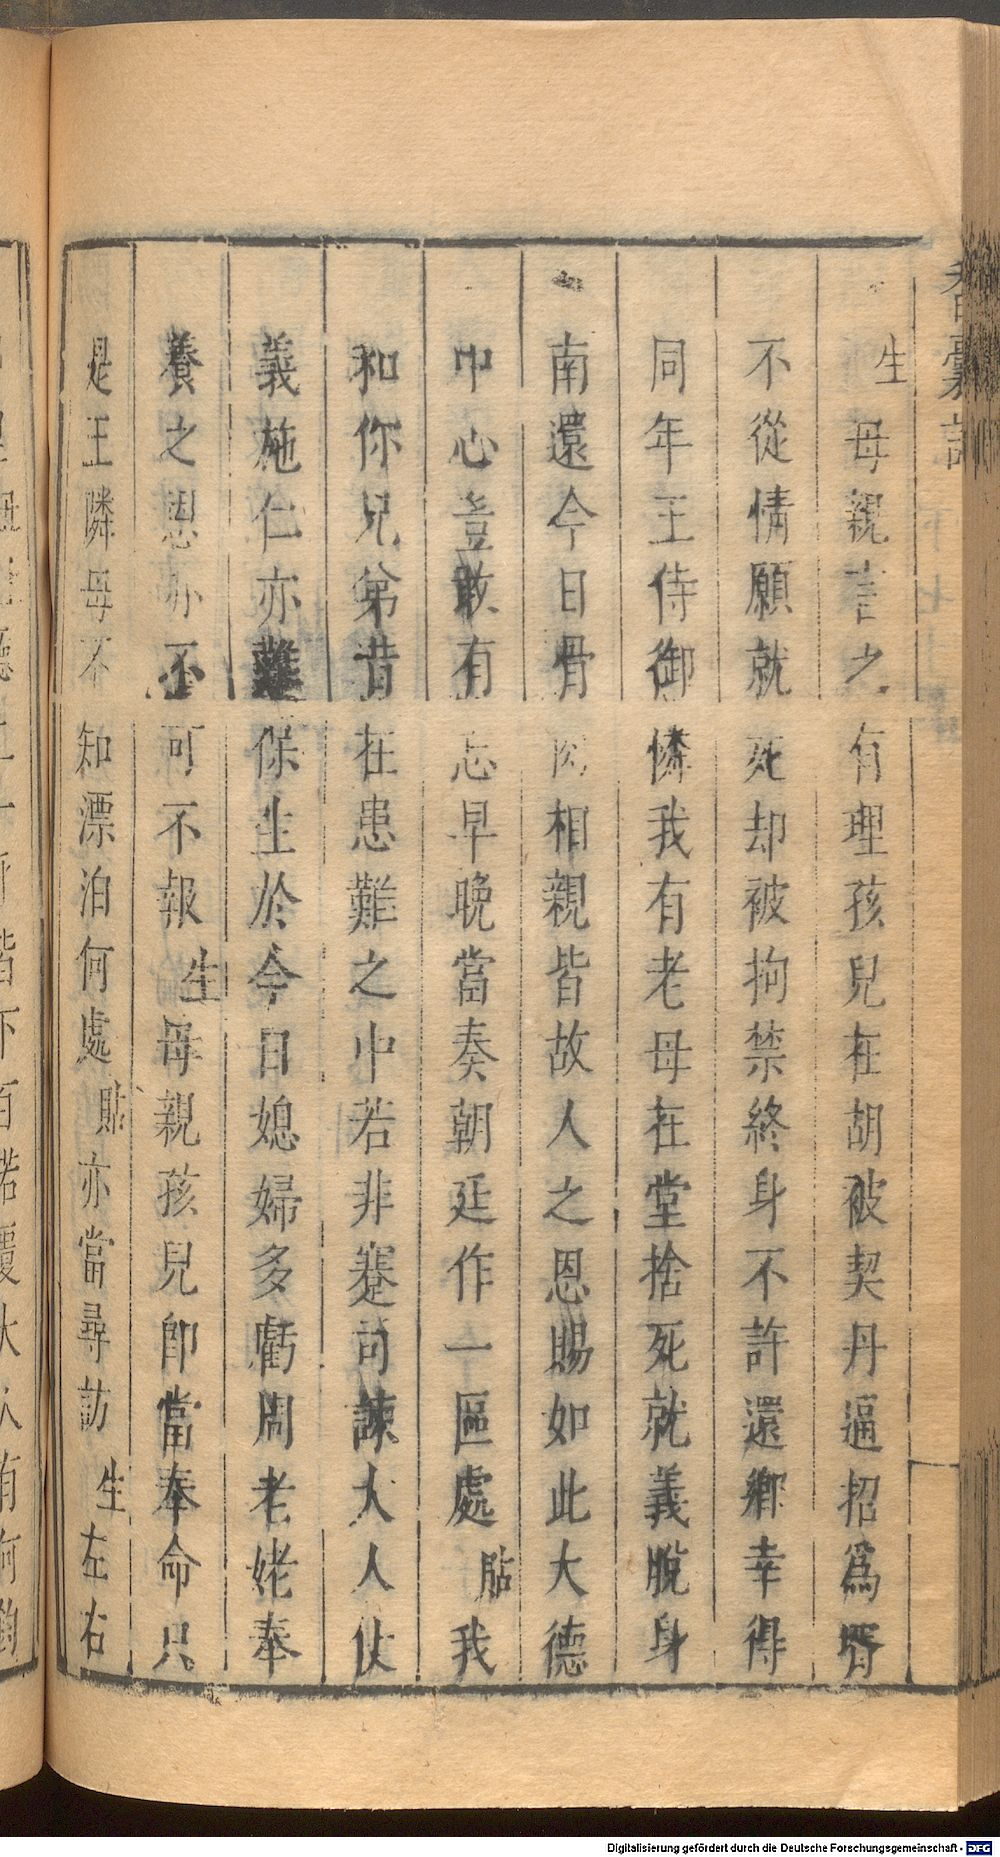 香囊記
下 七
生 母親言之有理孩兒在胡被契丹逼招爲壻
不從情願就死却被拘禁終身不許還鄉幸得
同年王侍御憐我有老母在堂捨死就義脫身
南還今日骨肉相親皆故人之恩賜如此大德
中心豈敢有忘早晚當奏朝廷作一區處 貼 我
和你兄弟昔在患難之中若非蹇司諫大人仗
義施仁亦難保生於今日媳婦多虧周老姥奉
養之恩亦不可不報 生 母親孩兒卽當奉命只
是王隣母不知漂泊何處 貼 亦當尋訪 生 左右
Digitalisierung gefördert durch die Deutsche Forschungsgemeinschaft - DFG